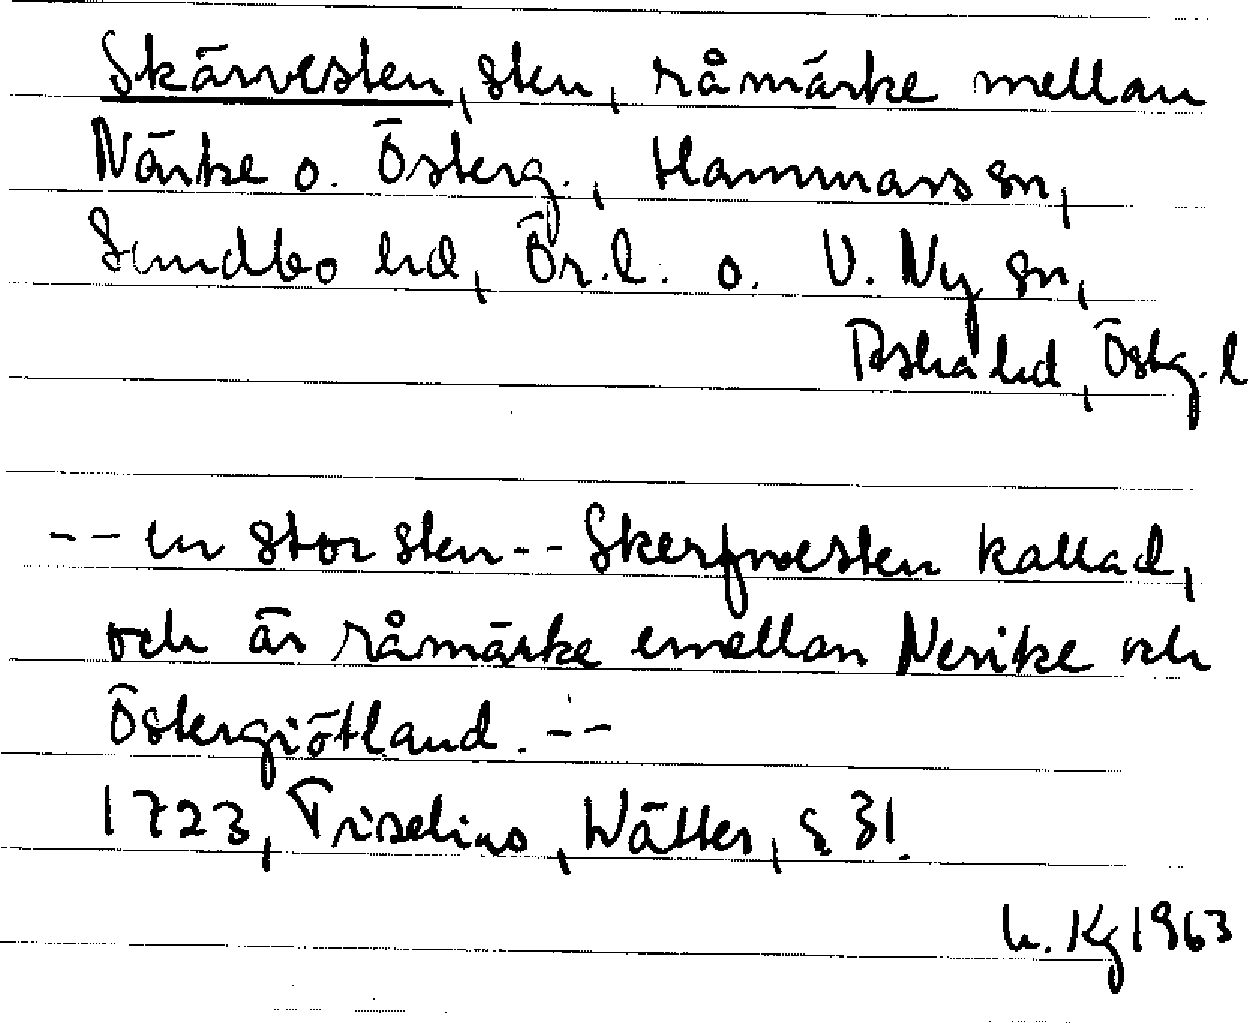 Skärvesten, sten, råmärke mellan
Närke o. Österg., Hammars sn,
Sundbo hd, Ör.l. o. V. Ny sn,
Aska hd, Östg.l
-- en stor sten -- Skerfwesten kallad,
och är råmärke emellan Nerike och
Östergiötland. --
1723, Tiselius, Wätter, s 31.
h. Kg 1963